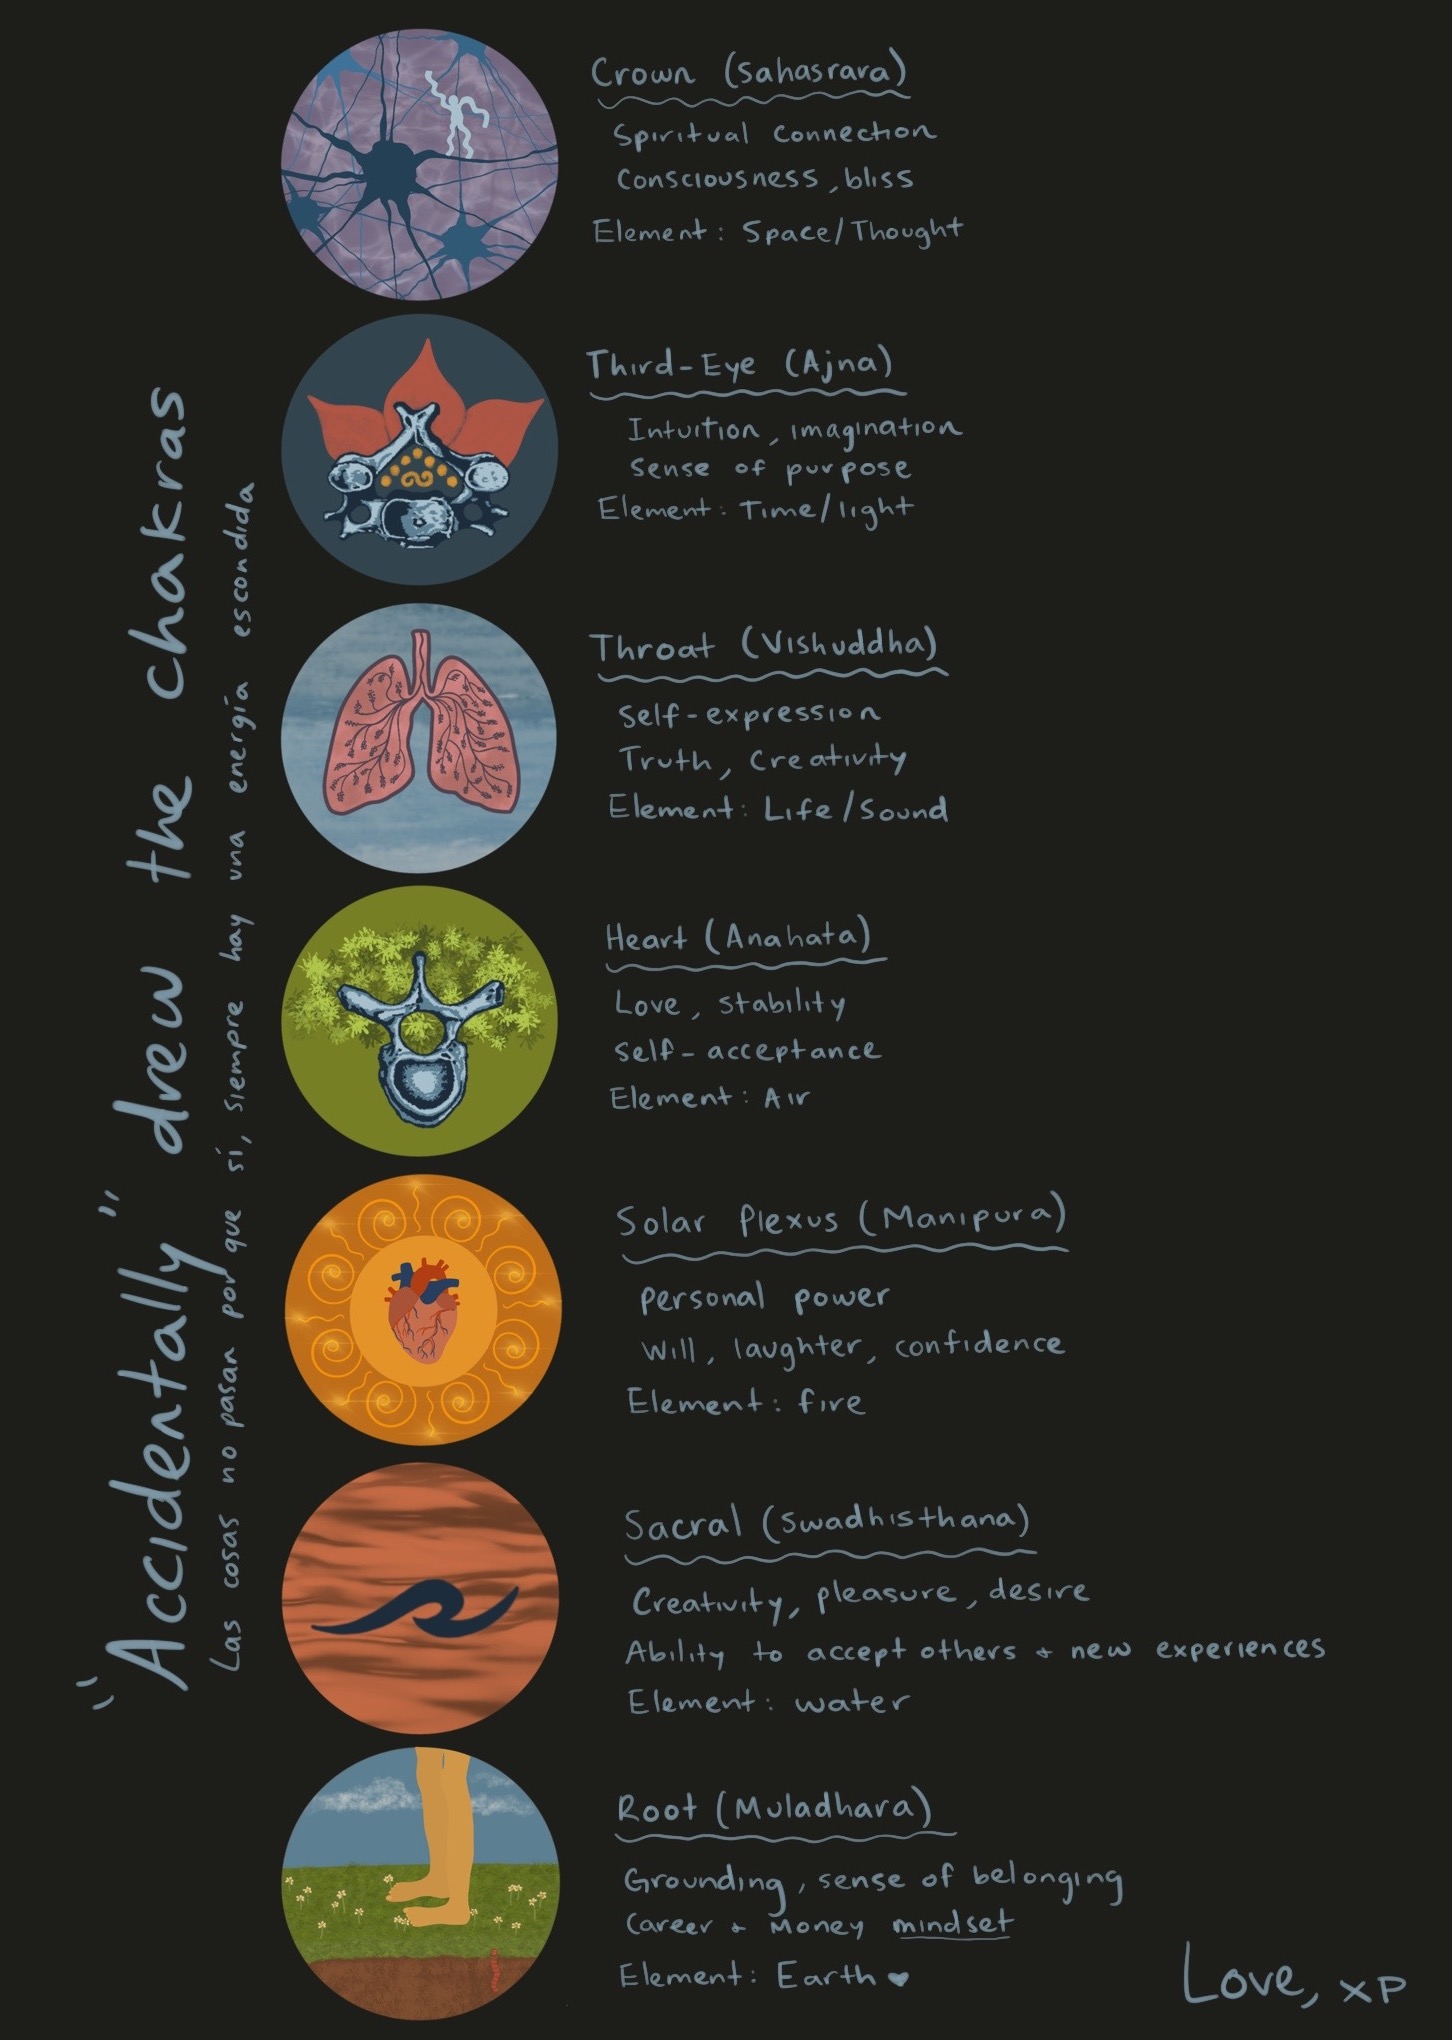 "Accidentally" drew the chakras
Las cosas no pasan por que sí, siempre hay una energía escondida
Crown (Sahasrara)
Spiritual connection
Consciousness, bliss
Element: Space/Thought
Third-Eye (Ajna)
Intuition, imagination
Sense of purpose
Element: Time/light
Throat (Vishuddha)
Self-expression
Truth, Creativity
Element: Life/Sound
Heart (Anahata)
Love, stability
Self-acceptance
Element: Air
Solar Plexus (Manipura)
Personal power
Will, laughter, confidence
Element: fire
Sacral (Swadhisthana)
Creativity, pleasure, desire
Ability to accept others + new experiences
Element: water
Root (Muladhara)
Grounding, sense of belonging
Career + Money mindset
Element: Earth ♥
Love, XP